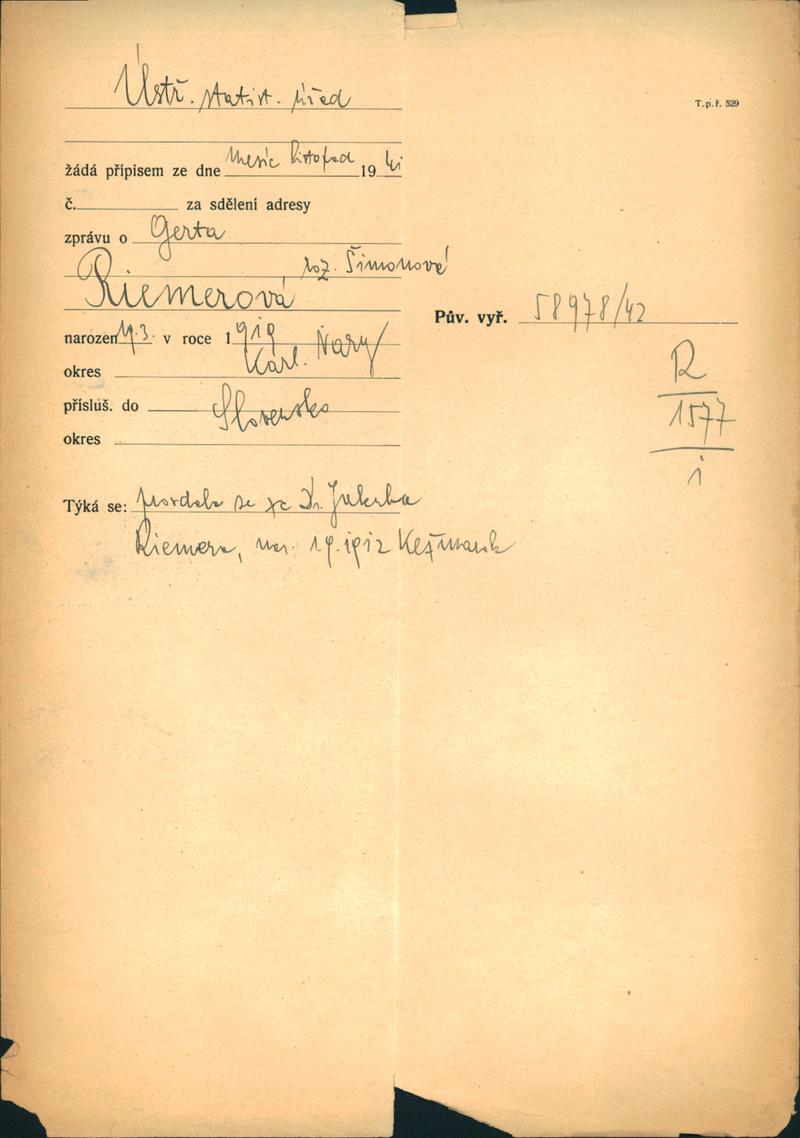 Ústř. statist. úřad
T. p. ř. 529
žádá přípisem ze dne měsíc listopad 19 41
č. za sdělení adresy
zprávu o Gerta
roz. Šimonové
Riemerová
Pův. vyř. 58978/42
narozen 19.3. v roce 1919
Karl. Vary
okres
R
1577
i
přísluš. do Slovensko
okres
Týká se: provdala se za Dr. Jakuba
Riemera, nar. 1.9.1912 Kežmarok